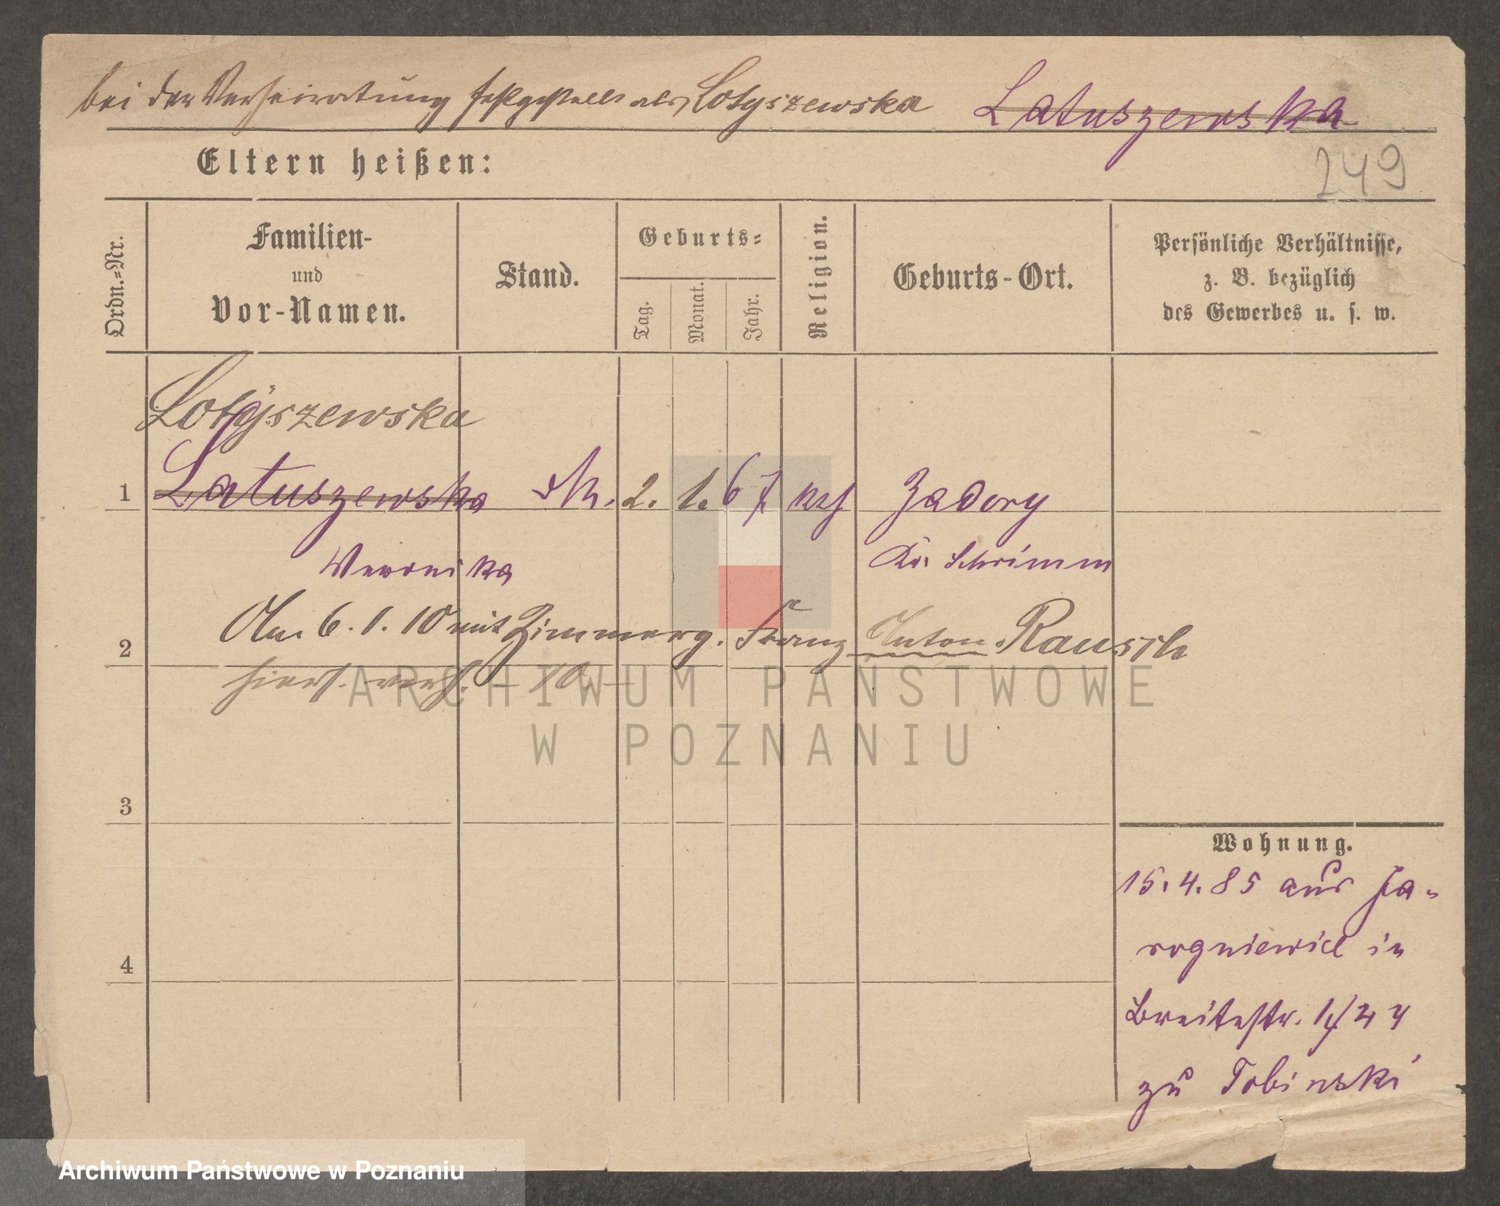 bei der Verheiratung festgestellt als Lotyszewska Latuszewska
249
Eltern heißen:
Ordn.-Nr.
Familien-
und
Vor-Namen.
Stand.
Geburts-
Tag.
Monat.
Jahr.
Religion.
Geburts-Ort.
Persönliche Verhältnisse,
z. B. bezüglich
des Gewerbes u. s. w.
Lotyszewska
1 Latuszewska 2. 1. 67 kath Zadory
Veronika Kr. Schrimm
2 Am 6.1.10 mit Zimmerg. Franz Anton Rausch
hiers. verh.
ARCHIWUM PAŃSTWOWE
W POZNANIU
3
Wohnung.
15.4.85 aus Ja-
rogniewice in
4
Breitestr.
zu Tobinski
Archiwum Państwowe w Poznaniu